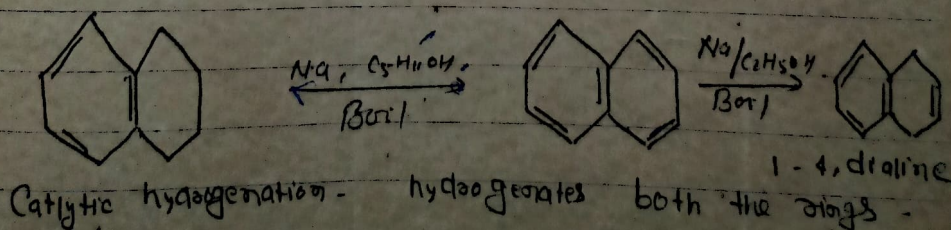 Na, C5H11OH, Na/C2H5OH.
Boil Boil
1-4, dialine
Catlytic hydrogenation - hydrogenates both the rings -